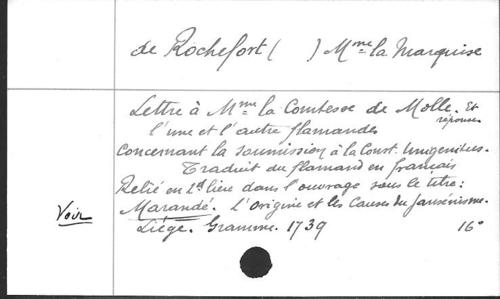 de Rochefort ( ) Mme la Marquise
Lettre à Mme la Comtesse de Molle. Et réponses
l'une et l'autre flamandes
concernant la soumission à la Const. Unigenitus.
Traduit du flamand en français
Relié en 2d lieu dans l'ouvrage sous le titre:
Voir Marandé. L'origine et les causes du jansénisme.
Liége. Gramme. 1739 16°